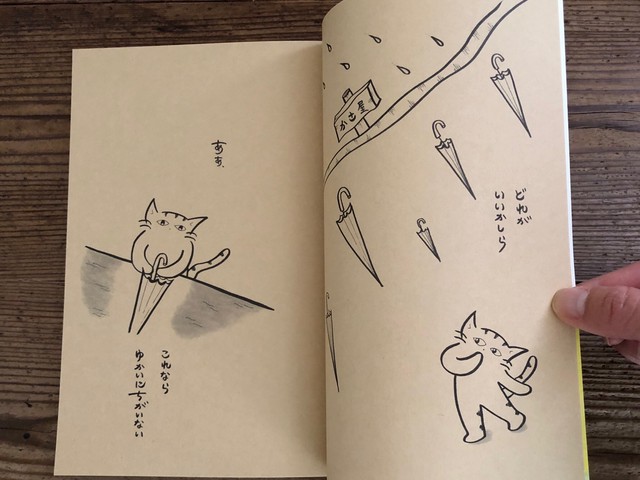 かさ屋
どれが
いいかしら
あぁ、
これなら
ゆかいにちがいない